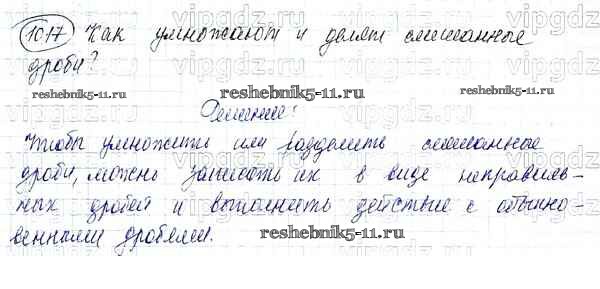 1017 Как умножают и делят смешанные
дроби?
reshebnik5-11.ru reshebnik5-11.ru
Решение:
Чтобы умножить или разделить смешанные
дроби, можно записать их в виде неправиль-
ных дробей и выполнить действие с обыкно-
венными дробями.
reshebnik5-11.ru reshebnik5-11.ru